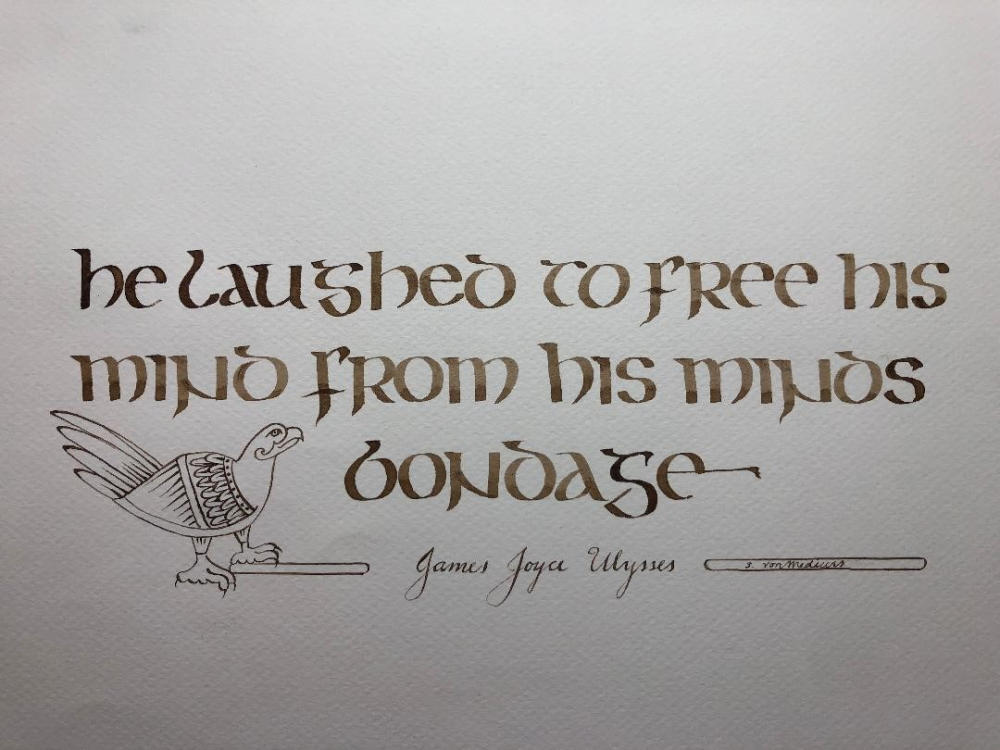 he laughed to free his
mind from his minds
bondage
James Joyce Ulysses